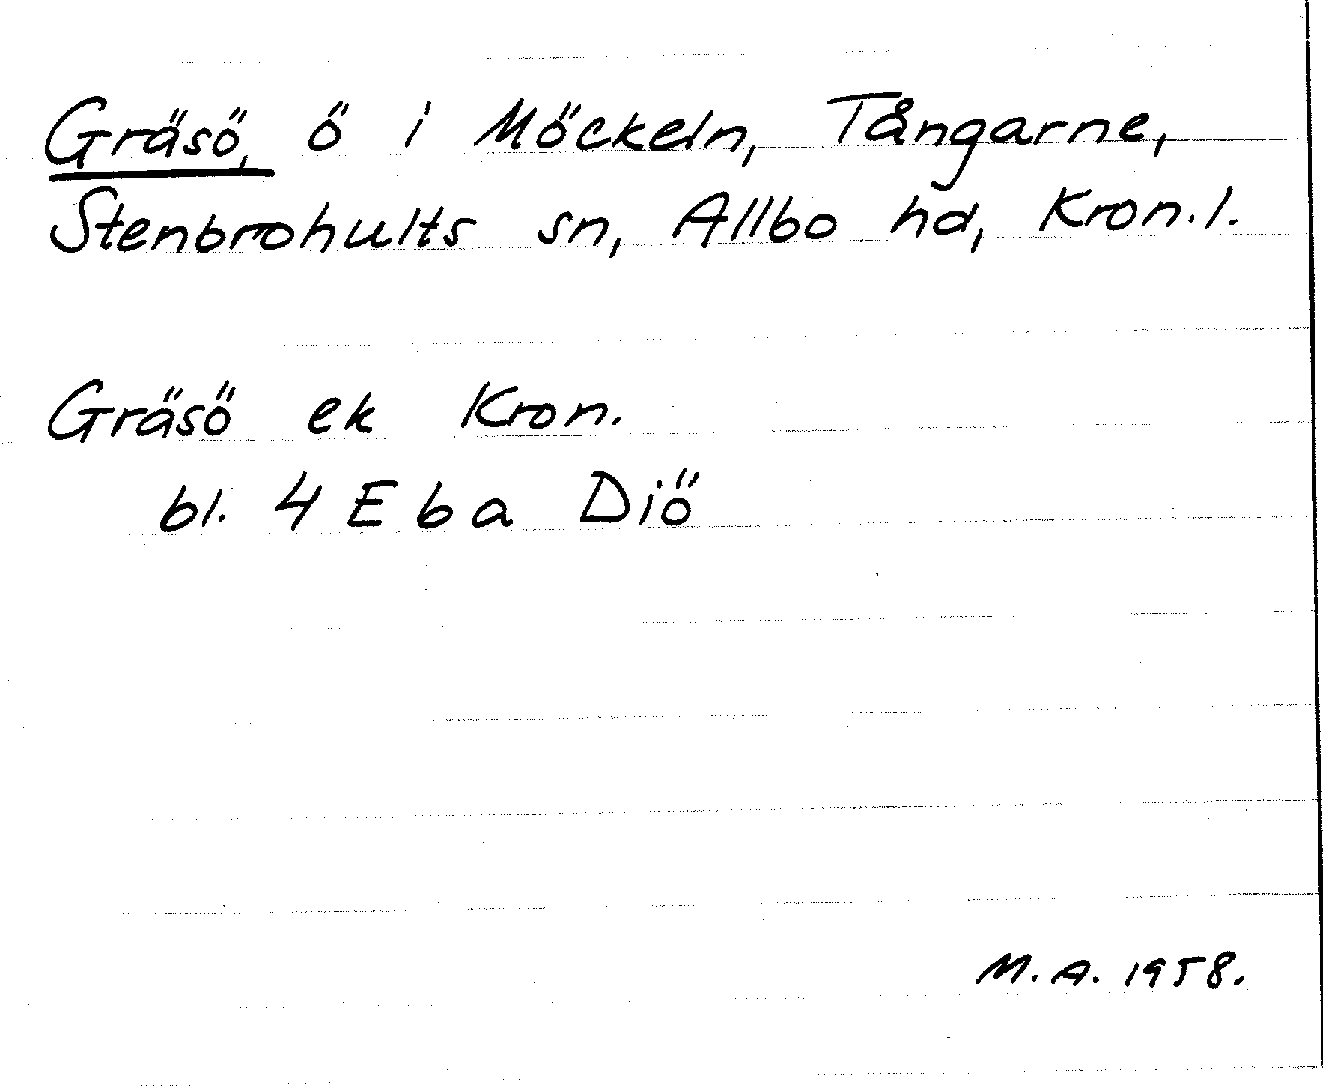 Gräsö, ö i Möckeln, Tångarne,
Stenbrohults sn, Allbo hd, Kron. l.
Gräsö ek Kron.
bl. 4 E b a Diö
M. A. 1958.